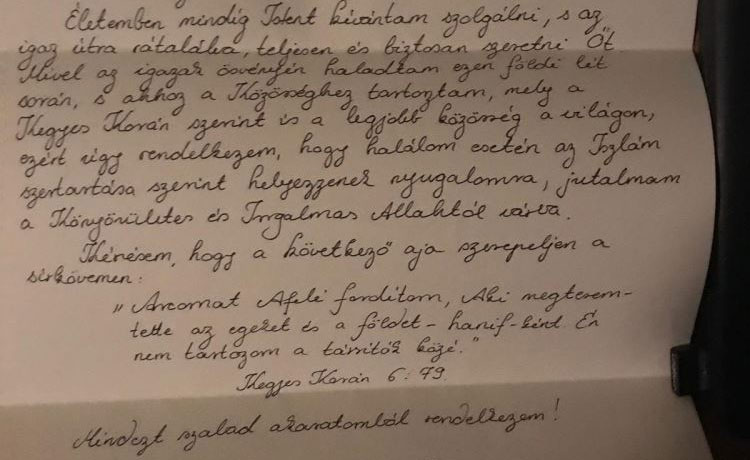 Életemben mindig Istent kívántam szolgálni, s az
igaz útra rátalálva, teljesen és biztosan szeretni Őt.
Mivel az igazak ösvényén haladtam ezen földi lét
során, s ahhoz a Közösséghez tartoztam, mely a
Kegyes Korán szerint is a legjobb közösség a világon,
ezért úgy rendelkezem, hogy halálom esetén az Iszlám
szertartása szerint helyezzenek nyugalomra, jutalmam
a Könyörületes és Irgalmas Allahtól várva.
Kérésem, hogy a következő aja szerepeljen a
sírkövemen:
„Arcomat Afelé fordítom, Aki megterem-
tette az egeket és a földet - hanif-ként. Én
nem tartozom a társítók közé."
Kegyes Korán 6:79.
Mindezt szabad akaratomból rendelkezem!